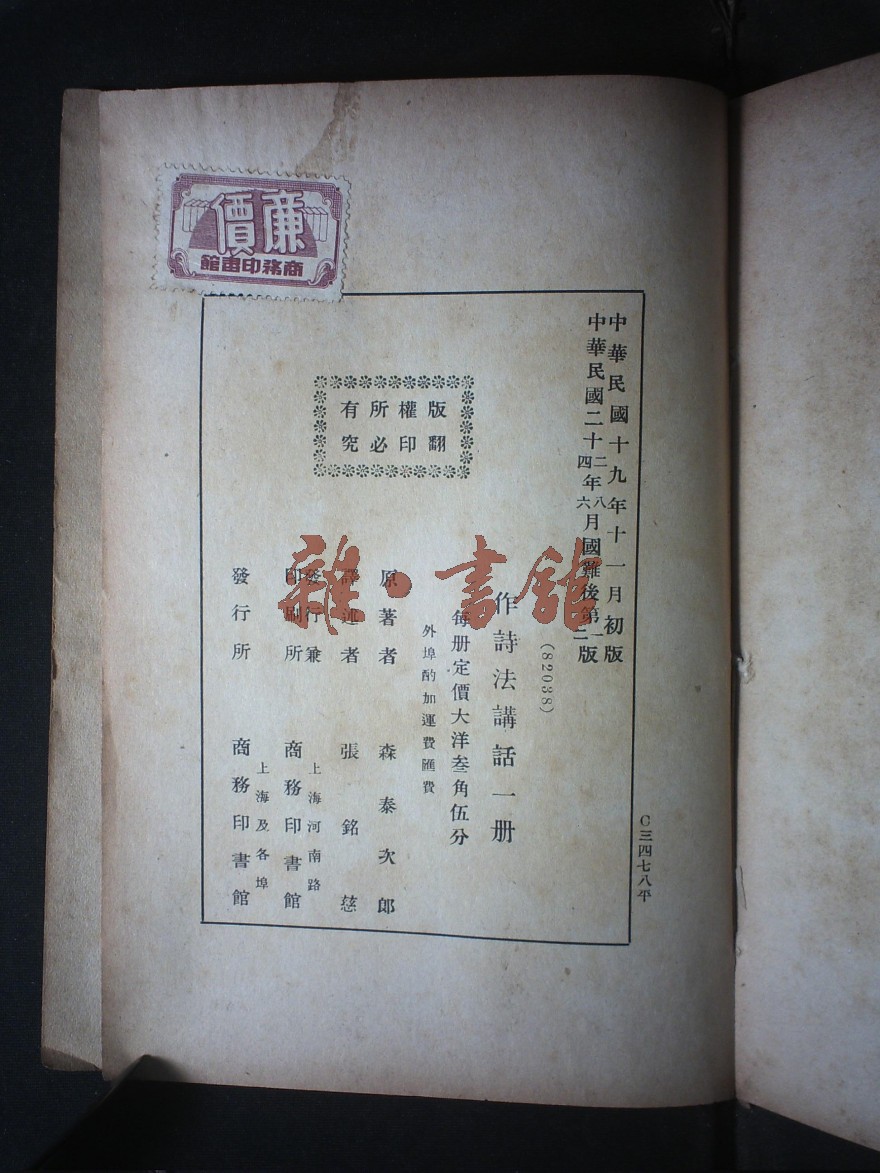 廉價
商務印書館
C三四七八平
中華民國十九年十一月初版
中華民國二十二四年八六月國難後第一二版
(82038)
作詩法講話一册
每册定價大洋叁角伍分
外埠酌加運費匯費
版權所有
翻印必究
原著者 森泰次郎
譯述者 張銘慈
發行兼印刷所 上海河南路 商務印書館
發行所 上海及各埠 商務印書館
雜·書館